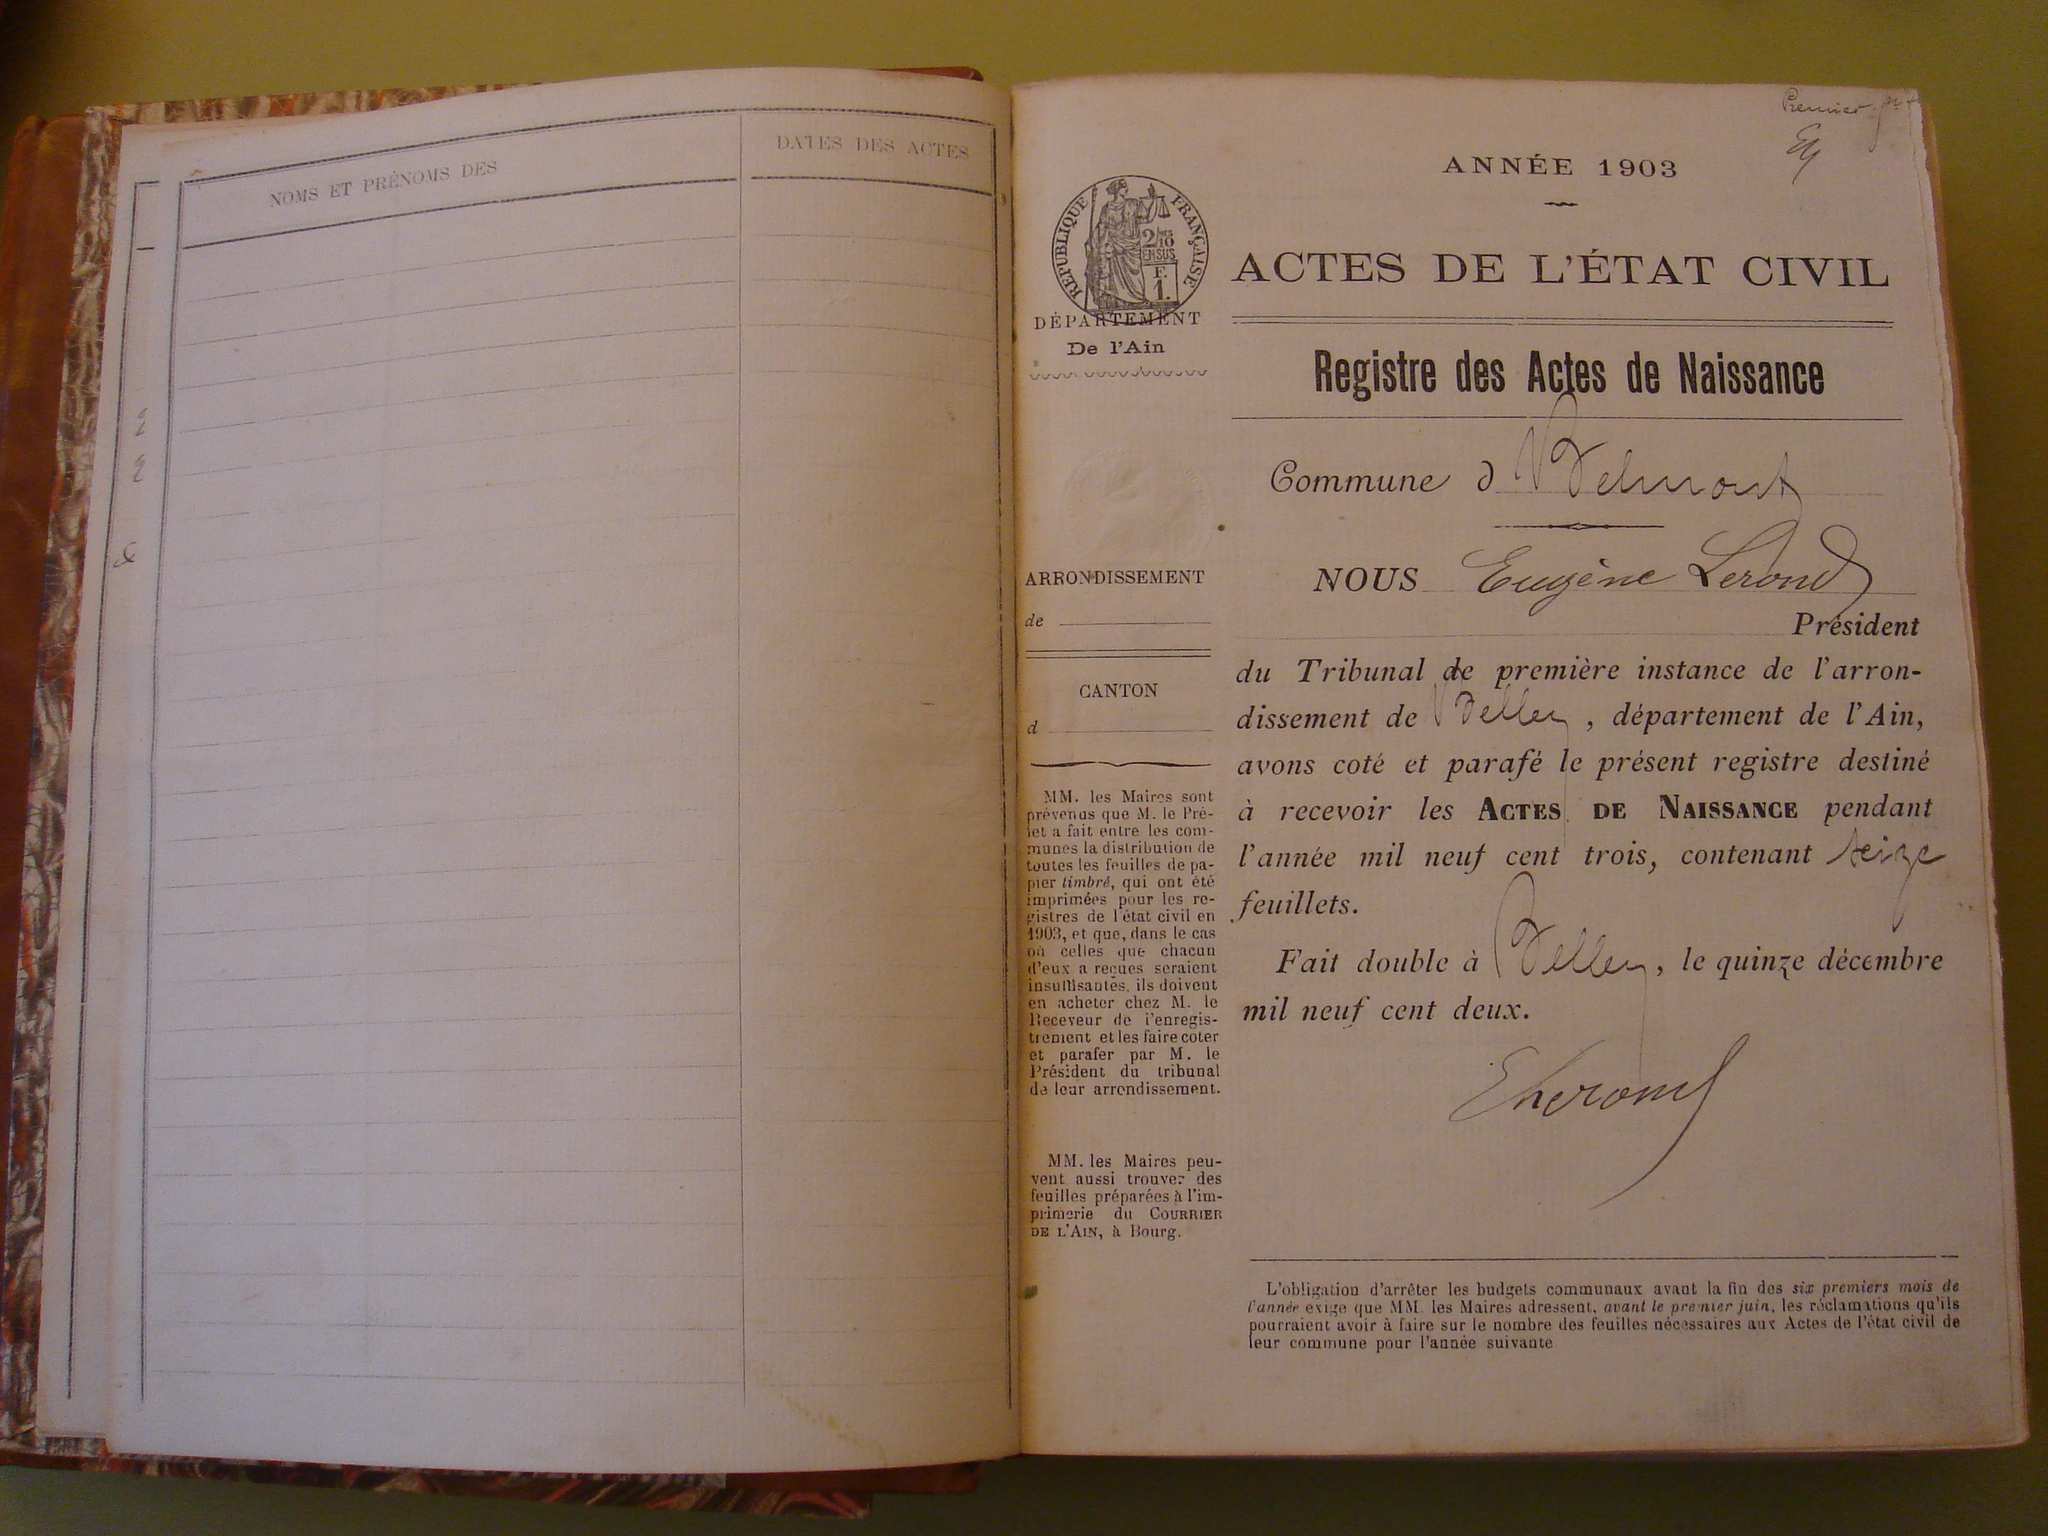 NOMS ET PRÉNOMS DES
DATES DES ACTES
Premier
ANNÉE 1903
RÉPUBLIQUE FRANÇAISE
2/10
EN SUS
F.
1.
DÉPARTEMENT
De l'Ain
ACTES DE L'ÉTAT CIVIL
Registre des Actes de Naissance
Commune d Belmont
ARRONDISSEMENT
de
CANTON
d
MM. les Maires sont
prévenus que M. le Pré-
fet a fait entre les com-
munes la distribution de
toutes les feuilles de pa-
pier timbré, qui ont été
imprimées pour les re-
gistres de l'état civil en
1903, et que, dans le cas
où celles que chacun
d'eux a reçues seraient
insuffisantes, ils doivent
en acheter chez M. le
Receveur de l'enregis-
trement et les faire coter
et parafer par M. le
Président du tribunal
de leur arrondissement.
MM. les Maires peu-
vent aussi trouver des
feuilles préparées à l'im-
primerie du COURRIER
DE L'AIN, à Bourg.
NOUS Eugène Lerond
Président
du Tribunal de première instance de l'arron-
dissement de Belley, département de l'Ain,
avons coté et parafé le présent registre destiné
à recevoir les ACTES DE NAISSANCE pendant
l'année mil neuf cent trois, contenant seize
feuillets.
Fait double à Belley, le quinze décembre
mil neuf cent deux.
L'obligation d'arrêter les budgets communaux avant la fin des six premiers mois de
l'année exige que MM. les Maires adressent, avant le premier juin, les réclamations qu'ils
pourraient avoir à faire sur le nombre des feuilles nécessaires aux Actes de l'état civil de
leur commune pour l'année suivante